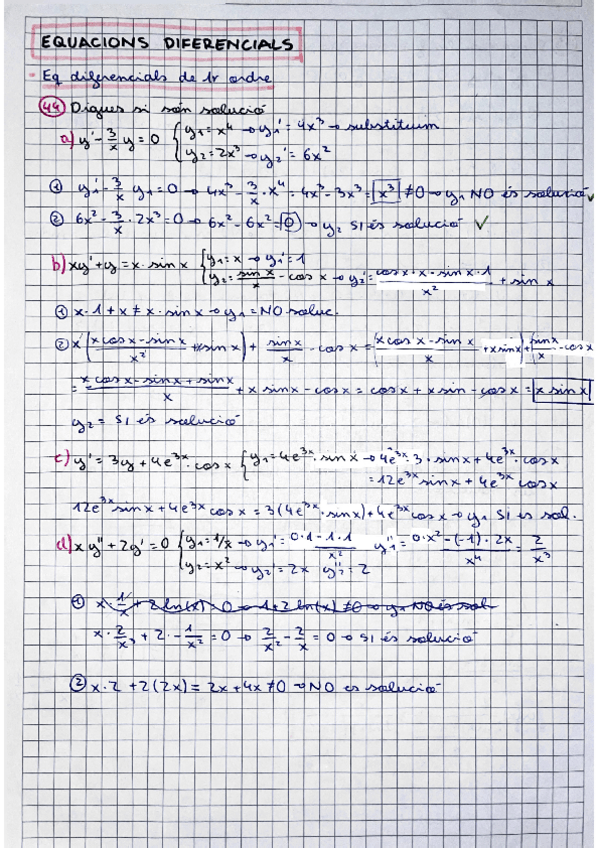 EQUACIONS DIFERENCIALS
Eq diferencials de 1r ordre
44 Digues si són solució
a) y' - 3/x y = 0 { y₁ = x⁴ → y₁' = 4x³ → substituïm
y₂ = 2x³ → y₂' = 6x²
① y₁' - 3/x y₁ = 0 → 4x³ - 3/x · x⁴ = 4x³ - 3x³ = x³ ≠ 0 → y₁ NO és solució ✓
② 6x² - 3/x · 2x³ = 0 → 6x² - 6x² = 0 → y₂ SI és solució ✓
b) xy' + y = x · sin x { y₁ = x → y₁' = 1
y₂ = sin x/x - cos x → y₂' = (cos x · x - sin x · 1)/x² + sin x
① x · 1 + x ≠ x · sin x → y₁ = NO soluc.
② x ((x cos x - sin x)/x² + sin x) + sin x/x - cos x = ((x cos x - sin x)/x + x sin x) + (sin x/x - cos x
= (x cos x - sin x + sin x)/x + x sin x - cos x = cos x + x sin - cos x = x sin x
y₂ = SI és solució
c) y' = 3y + 4e³ˣ · cos x { y₁ = 4e³ˣ · sin x → 4e³ˣ · 3 · sin x + 4e³ˣ · cos x
= 12e³ˣ sin x + 4e³ˣ cos x
12e³ˣ sin x + 4e³ˣ cos x = 3(4e³ˣ · sin x) + 4e³ˣ cos x → y₁ SI és sol.
d) x y'' + 2y' = 0 { y₁ = 1/x → y₁' = (0 · 1 - 1 · 1)/x² y₁'' = (0 · x² - (-1) · 2x)/x⁴ = 2/x³
y₂ = x² → y₂' = 2x y₂'' = 2
① x · 1/x + 2 ln(x) = 0 → 1 + 2 ln(x) ≠ 0 → y₁ NO és sol
x · 2/x³ + 2 · - 1/x² = 0 → 2/x² - 2/x = 0 → SI és solució
② x · 2 + 2(2x) = 2x + 4x ≠ 0 → NO es solució